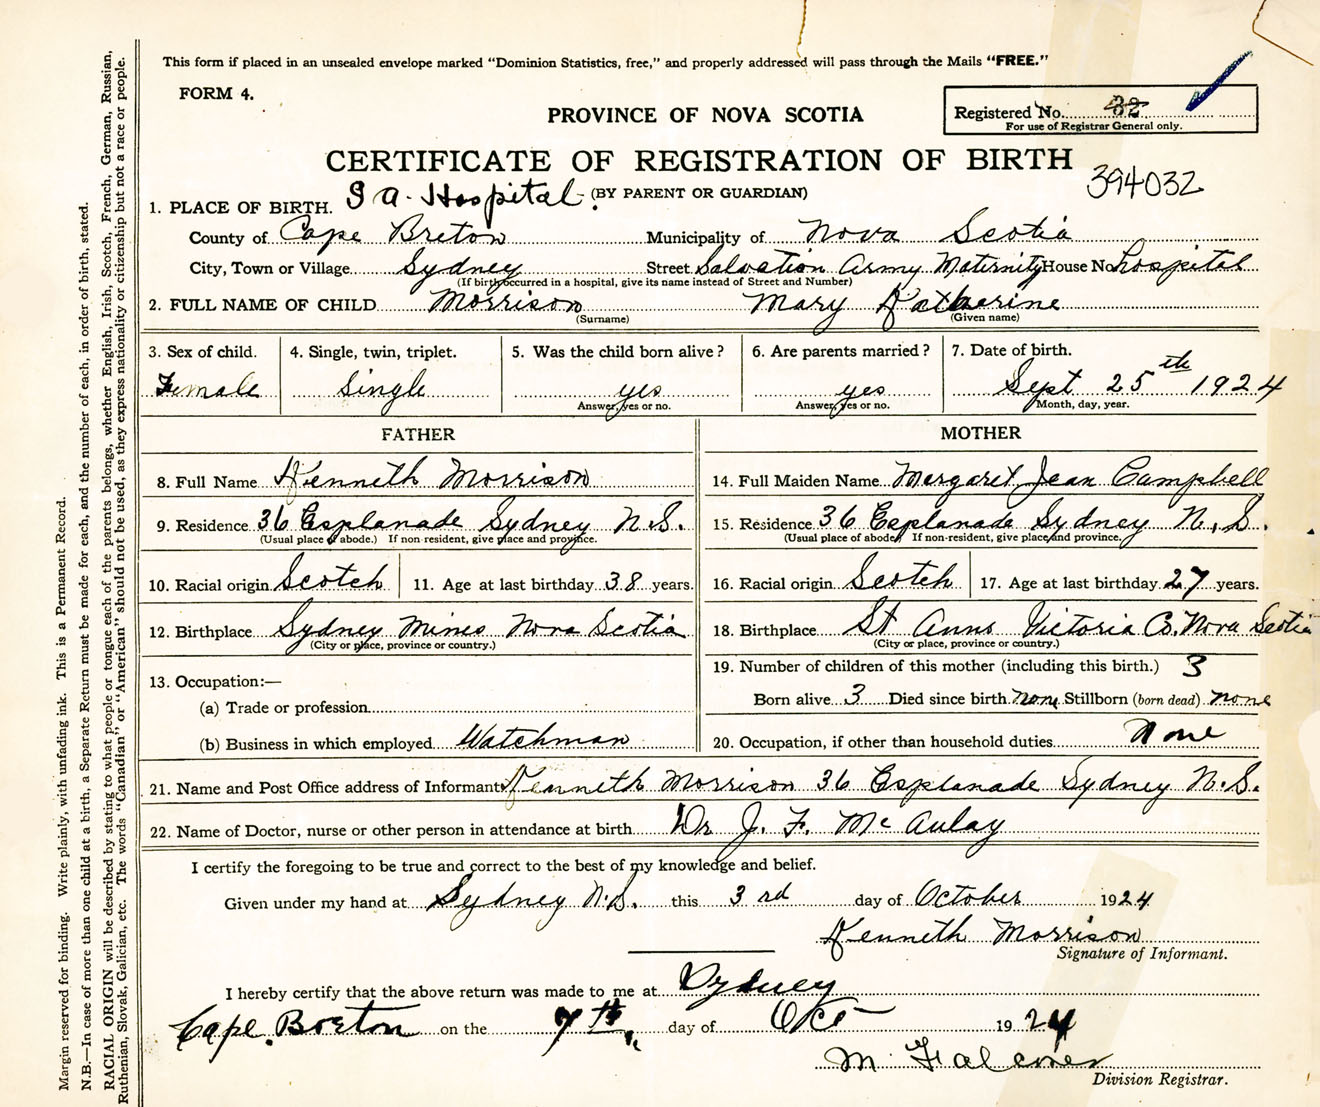 This form if placed in an unsealed envelope marked "Dominion Statistics, free," and properly addressed will pass through the Mails "FREE."
FORM 4.
PROVINCE OF NOVA SCOTIA
Registered No. 32
For use of Registrar General only.
CERTIFICATE OF REGISTRATION OF BIRTH
394032
(BY PARENT OR GUARDIAN)
1. PLACE OF BIRTH. S A. Hospital.
County of Cape Breton Municipality of Nova Scotia
City, Town or Village Sydney Street Salvation Army Maternity House No. Hospital
(If birth occurred in a hospital, give its name instead of Street and Number)
2. FULL NAME OF CHILD Morrison Mary Katherine
(Surname) (Given name)
3. Sex of child. 4. Single, twin, triplet. 5. Was the child born alive? 6. Are parents married? 7. Date of birth.
Female Single yes yes Sept 25th 1924
Answer, yes or no. Answer, yes or no. Month, day, year.
FATHER MOTHER
8. Full Name Kenneth Morrison 14. Full Maiden Name Margaret Jean Campbell
9. Residence 36 Esplanade Sydney N.S. 15. Residence 36 Esplanade Sydney N.S.
(Usual place of abode.) If non-resident, give place and province. (Usual place of abode) If non-resident, give place and province.
10. Racial origin Scotch 11. Age at last birthday 38 years. 16. Racial origin Scotch 17. Age at last birthday 27 years.
12. Birthplace Sydney Mines Nova Scotia 18. Birthplace St Anns Victoria Co. Nova Scotia
(City or place, province or country.) (City or place, province or country.)
19. Number of children of this mother (including this birth.) 3
13. Occupation:—
Born alive 3 Died since birth none Stillborn (born dead) none
(a) Trade or profession
(b) Business in which employed Watchman 20. Occupation, if other than household duties None
21. Name and Post Office address of Informant Kenneth Morrison 36 Esplanade Sydney N.S.
22. Name of Doctor, nurse or other person in attendance at birth Dr J. F. McAulay
I certify the foregoing to be true and correct to the best of my knowledge and belief.
Given under my hand at Sydney N.S. this 3rd day of October 1924
Kenneth Morrison
Signature of Informant.
I hereby certify that the above return was made to me at Sydney
Cape Breton on the 7th day of Oct 1924
M. Falconer
Division Registrar.
Margin reserved for binding. Write plainly, with unfading ink. This is a Permanent Record.
N.B.—In case of more than one child at a birth, a Separate Return must be made for each, and the number of each, in order of birth, stated.
RACIAL ORIGIN will be described by stating to what people or tongue each of the parents belongs, whether English, Irish, Scotch, French, German, Russian,
Ruthenian, Slovak, Galician, etc. The words "Canadian" or "American" should not be used, as they express nationality or citizenship but not a race or people.